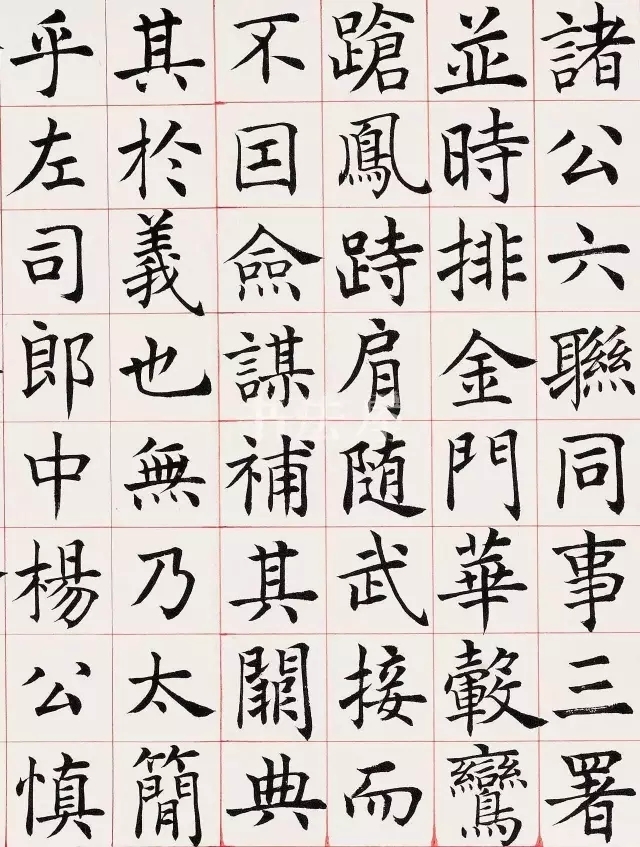 諸公六聯同事三署
並時排金門華轂鸞
蹌鳳跱肩随武接而
不囯僉謀補其闕典
其於義也無乃太簡
乎左司郎中楊公慎